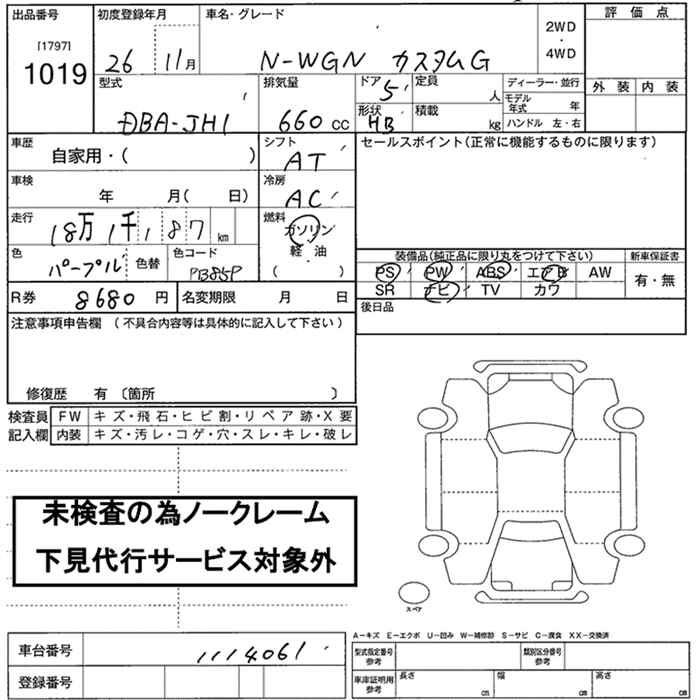 出品番号 初度登録年月 車名・グレード 2WD・4WD 評価点
[1797]
1019 26 11月 N-WGN カスタムG
外装 内装
型式 DBA-JH1 排気量 660 CC ドア 5 定員 人 ディーラー・並行
形状 HB 積載 kg モデル年式 年
ハンドル 左・右
車歴 自家用・( ) シフト AT セールスポイント(正常に機能するものに限ります)
車検 年 月( 日) 冷房 AC
走行 18万1千187km 燃料 ガソリン 軽油 ( ・ )
色 パープル 色替 色コード PB85P
装備品(純正品に限り丸をつけて下さい) 新車保証書
PS PW ABS エアB AW 有・無
SR ナビ TV カワ
R券 8680円 名変期限 月 日
後日品
注意事項申告欄(不具合内容等は具体的に記入して下さい)
修復歴 有〔箇所 〕
検査員 FW キズ・飛石・ヒビ割・リペア跡・X要
記入欄 内装 キズ・汚レ・コゲ・穴・スレ・キレ・破レ
未検査の為ノークレーム
下見代行サービス対象外
スペア
A-キズ E-エクボ U-凹み W-補修跡 S-サビ C-腐食 XX-交換済
車台番号 1114061 型式指定番号 参考 類別区分番号 参考
登録番号 車庫証明用 参考 長さ cm 幅 cm 高さ cm